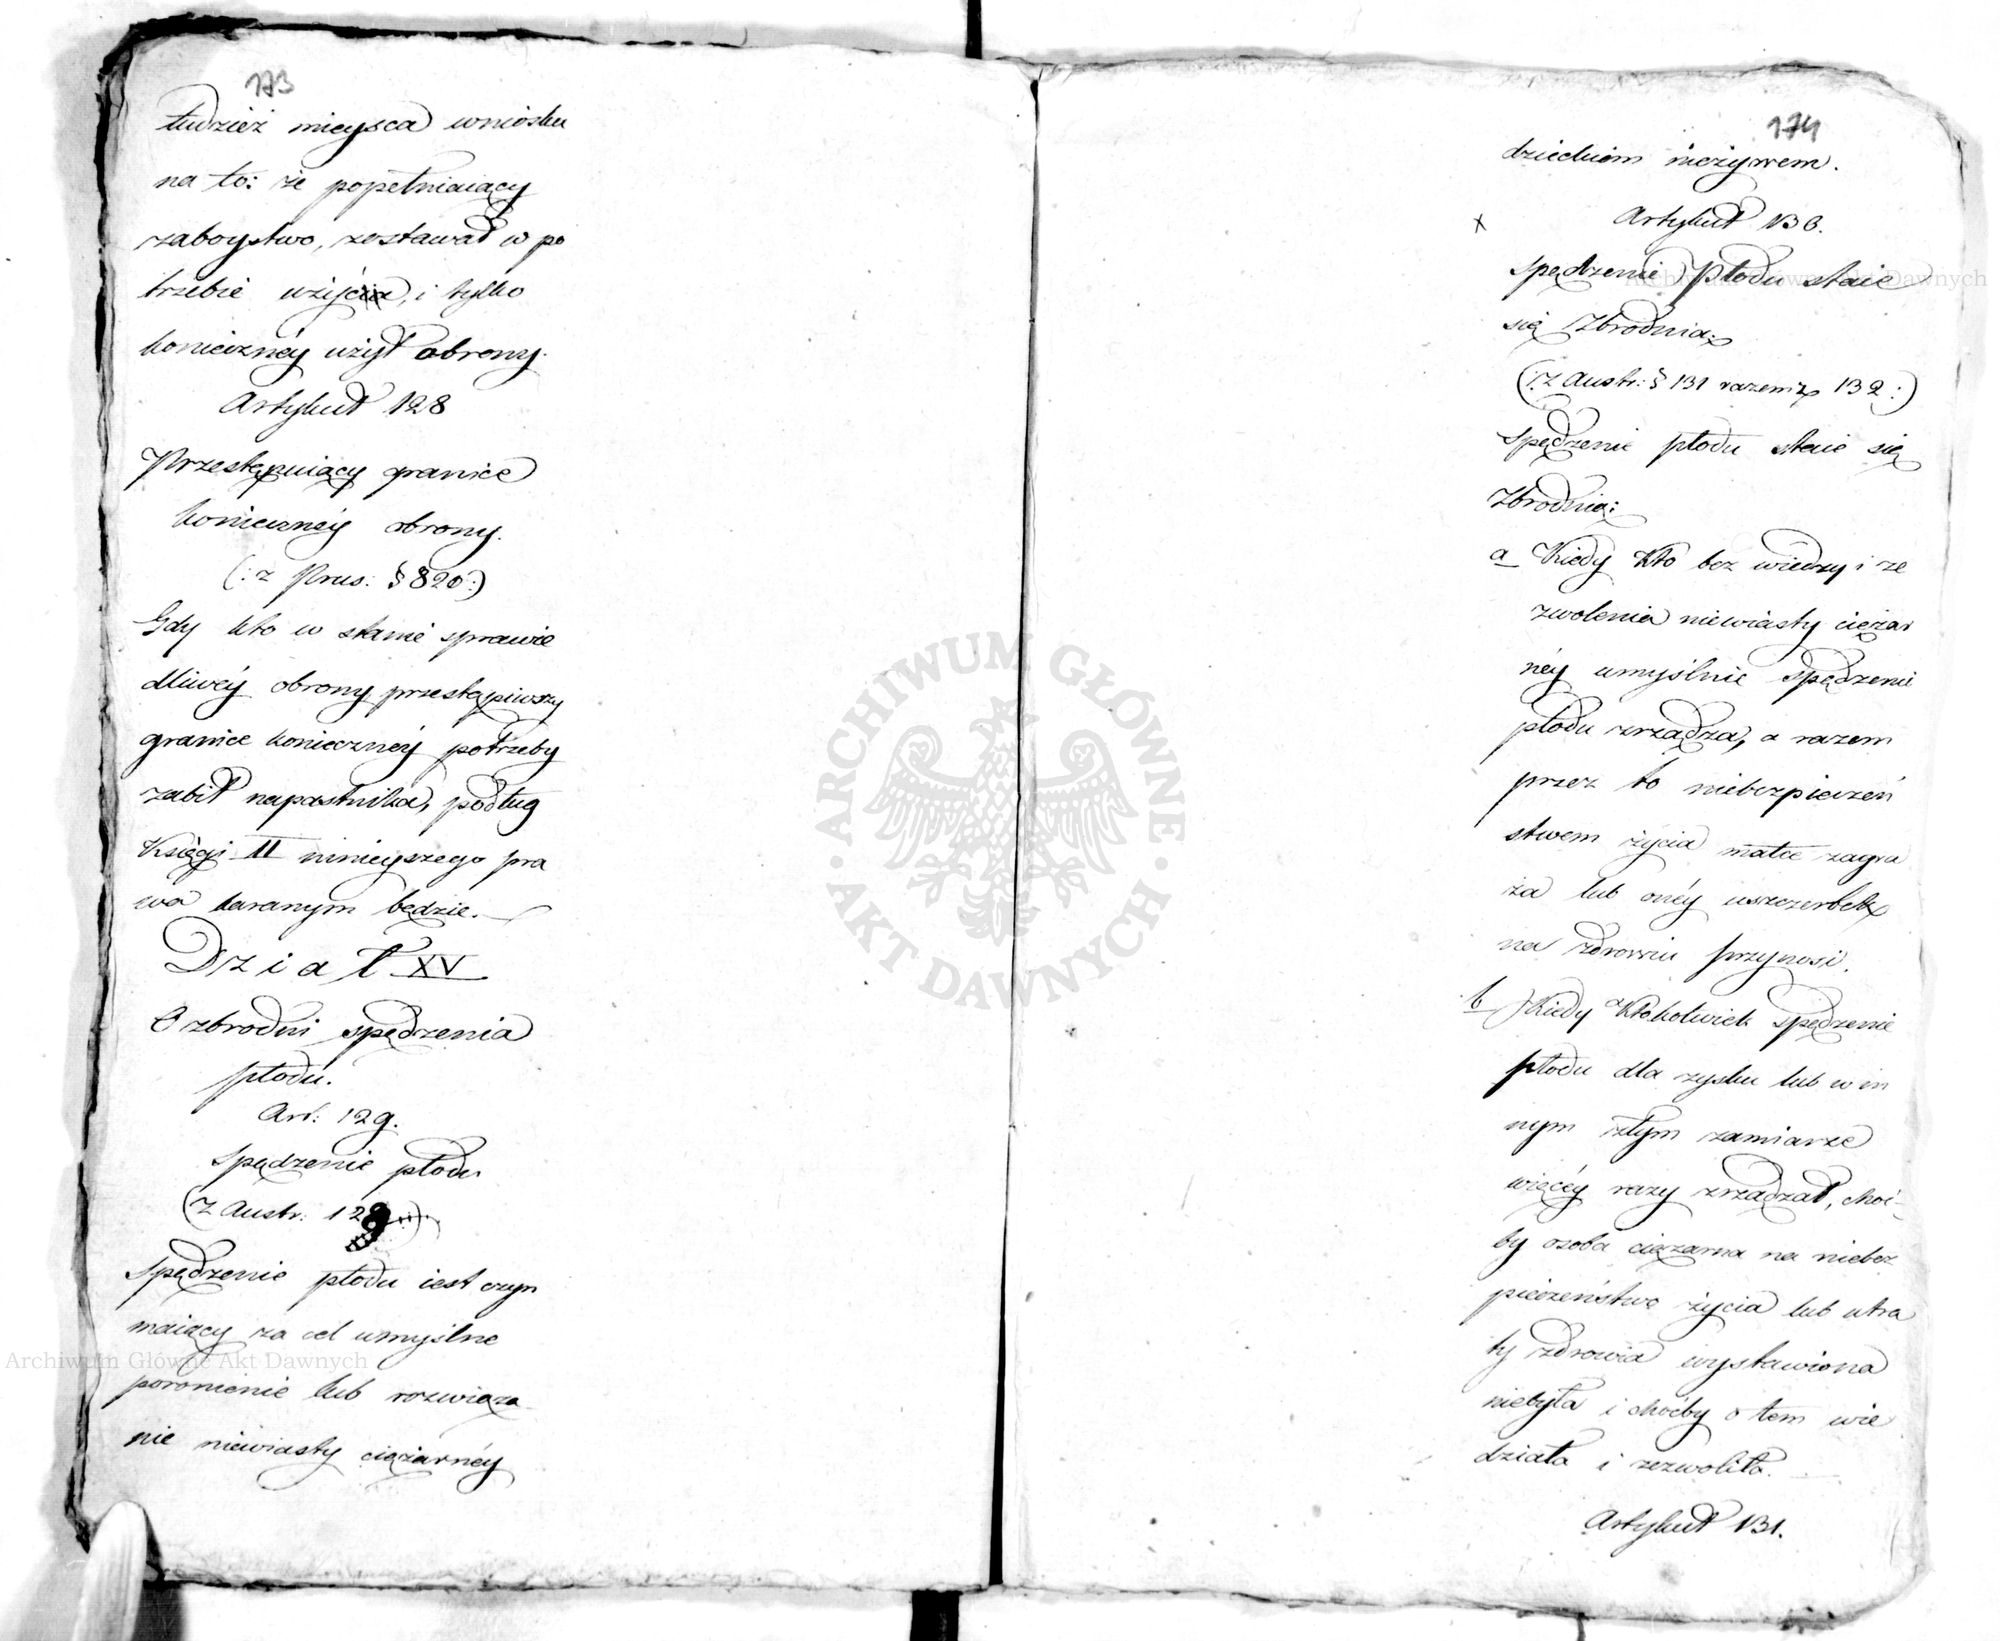 173
tudzież mieysca wniosku
na to: że popełniaiący
zaboystwo, zostawał w po
trzebie użycia, i tylko
konieczney użył obrony.
Artykuł 128
Przestępuiący granice
konieczney obrony.
(: z Prus: § 820 :)
Gdy kto w stanie sprawie
dliwey obrony przestąpiwszy
granice konieczney potrzeby
zabił napastnika, podług
Księgi II ninieyszego pra
wa karanym będzie.
Dział XV
O zbrodni spędzenia
płodu.
Art: 129.
Spędzenie płodu
(z Austr: 128
Spędzenie płodu iest czyn
maiący za cel umyślne
poronienie lub rozwiąza
nie niewiasty ciężarney
174
dzieckiem nieżywem.
x Artykuł 130.
Spędzenie Płodu staie
się Zbrodnią:
(: z Austr: § 131 razem z 132 :)
Spędzenie płodu staie się
Zbrodnią:
a Kiedy kto bez wiedzy i ze
zwolenia niewiasty ciężar
ney umyślnie spędzenie
płodu zrządza, a razem
przez to niebezpieczeń
stwem życia matce zagra
ża lub oney uszczerbek
na zdrowiu przynosi.
b Kiedy ktokolwiek spędzenie
płodu dla zysku lub w in
nym złym zamiarze
więcey razy zrządzał, choć-
by osoba ciężarna na niebez
pieczeństwo życia lub utra
ty zdrowia wystawiona
niebyła i choćby o tem wie
działa i zezwoliła.
Artykuł 131.
ARCHIWUM GŁÓWNE AKT DAWNYCH
Archiwum Główne Akt Dawnych
Archiwum Główne Akt Dawnych